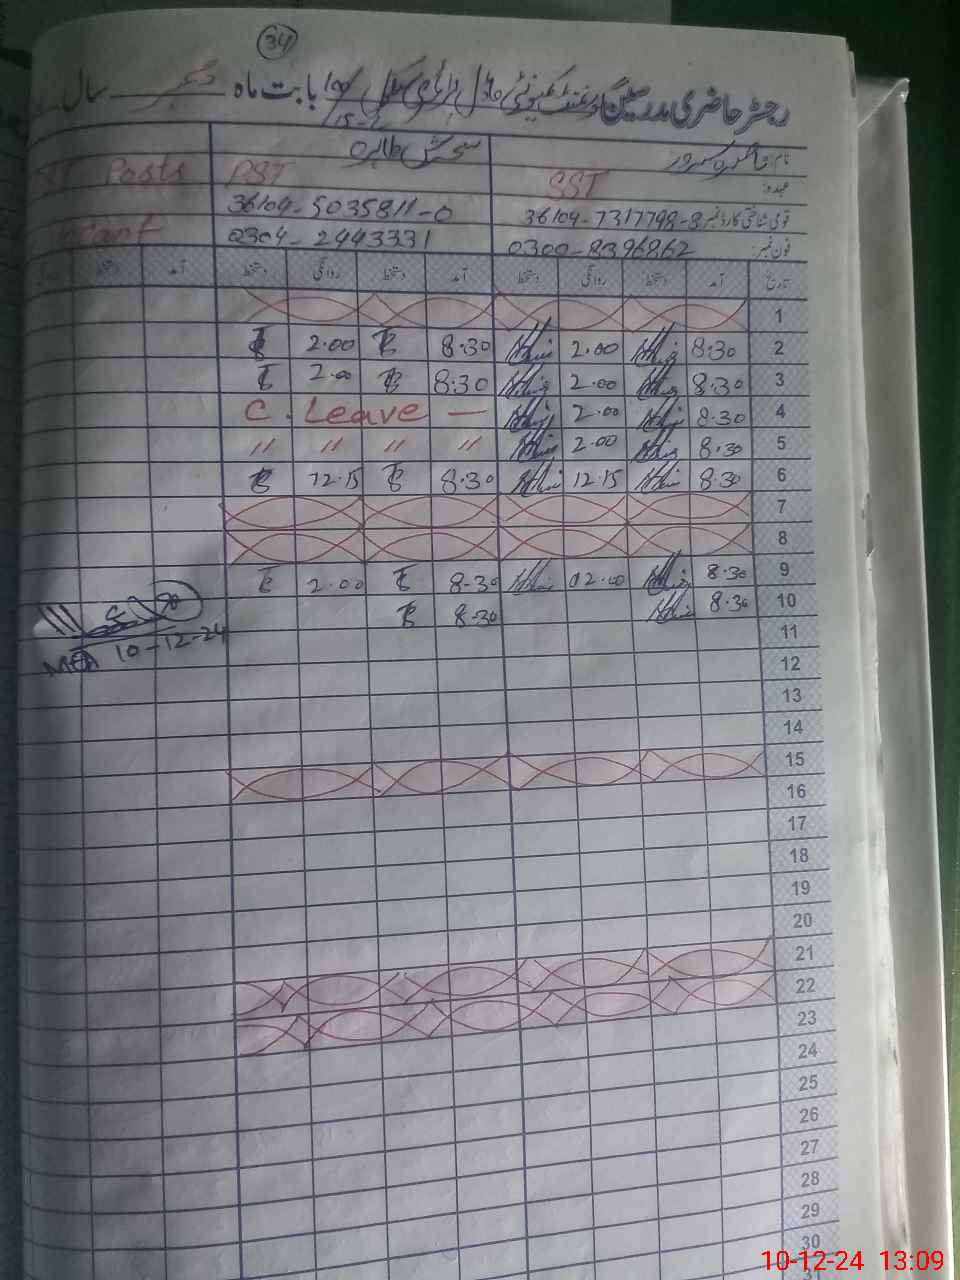 34
رجسٹر حاضری مدرسین گورنمنٹ کمیونٹی ماڈل پرائمری سکول بابت ماہ دسمبر سال
15-L
نام:
عہدہ: SST PST Posts
قومی شناختی کارڈ نمبر 36104-7317798-8 36104-5035811-0
فون نمبر: 0300-8396862 0304-2443331
تاریخ آمد دستخط روانگی دستخط آمد دستخط روانگی دستخط آمد دستخط
1
2 8.30 2.00 8.30 2.00
3 8.30 2.00 8.30 2.00
4 8.30 2.00 C. Leave —
5 8.30 2.00 〃 〃 〃 〃
6 8.30 12.15 8.30 12.15
7
8
9 8.30 02.00 8-30 2.00
10 8.30 8-30
MEA 10-12-24
11
12
13
14
15
16
17
18
19
20
21
22
23
24
25
26
27
28
29
30
31
10-12-24 13:09